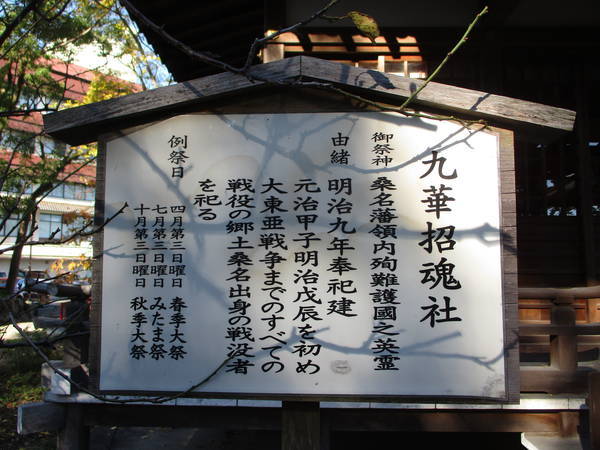 九華招魂社
御祭神 桑名藩領内殉難護國之英霊
由緒 明治九年奉祀建
元治甲子明治戊辰を初め
大東亜戦争までのすべての
戦役の郷土桑名出身の戦没者
を祀る
例祭日 四月第三日曜日 春季大祭
七月第三日曜日 みたま祭
十月第三日曜日 秋季大祭